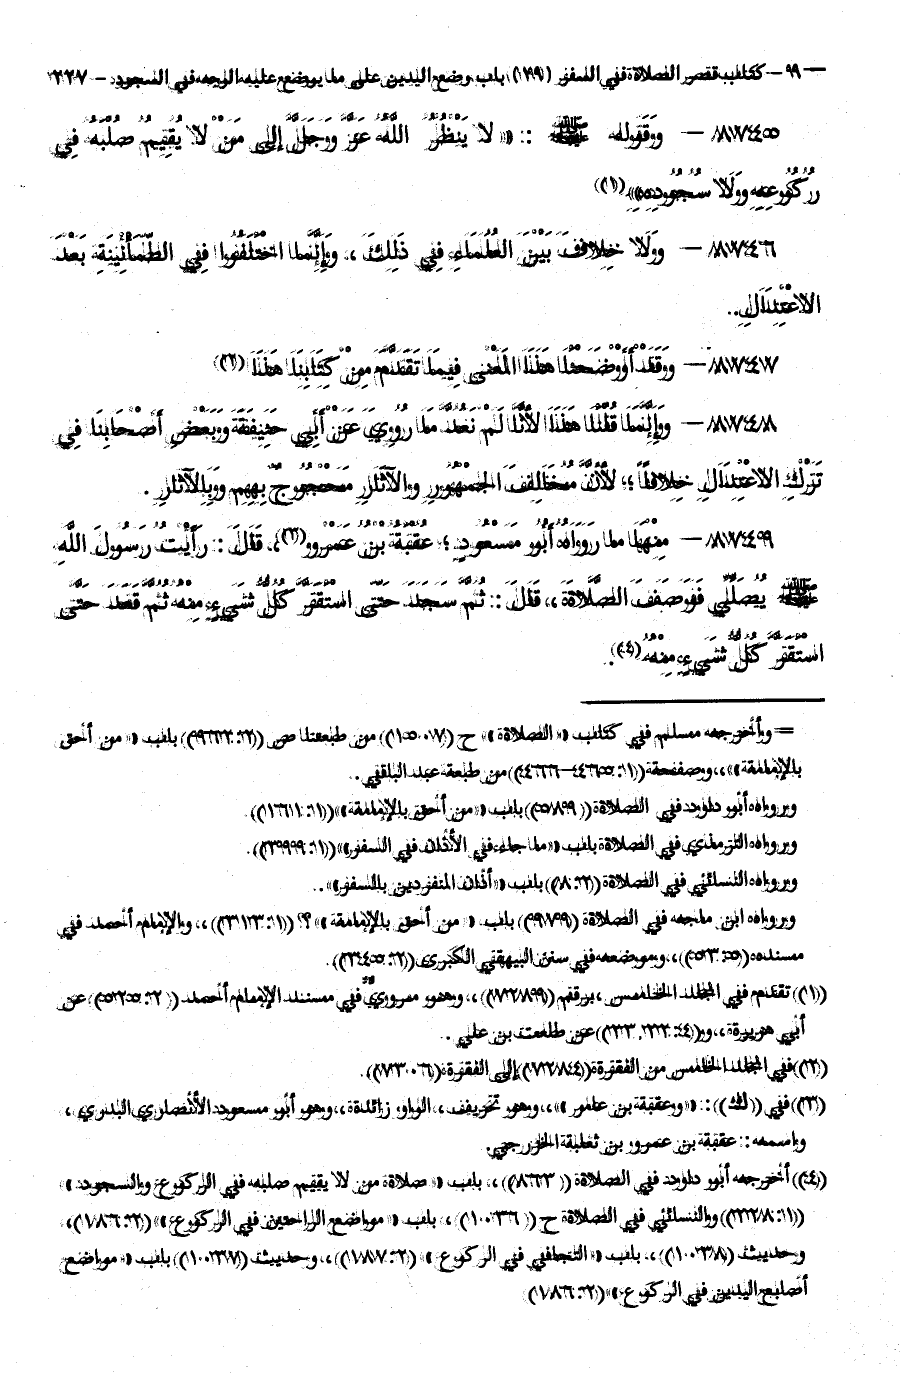 ٩ – كتاب قصر الصلاة في السفر (١٩) باب وضع اليدين على ما يوضع عليه الوجه في السجود –
– وَقَوْله ﷺ : « لا يَنْظُرُ اللَّهُ عَزَّ وَجَلَّ إِلى مَنْ لا يُقِيمُ صُلْبَهُ فِي
رُكُوعِهِ وَلَا سُجُودِهِ» (١)
– وَلا خِلافَ بَيْنَ العُلَمَاءِ فِي ذَلِكَ ، وَإِنَّما اخْتَلَفُوا فِي الطَّمَأْنِينَةِ بَعْدَ
الاعْتِدَالِ .
– وَقَدْ أَوْضَحْنَا هَذَا المَعْنى فِيمَا تَقَدَّمَ مِنْ كِتَابِنَا هَذَا (٢)
– وَإِنَّمَا قُلْنَا هَذَا لأَنَّا لَمْ نَعُدَّ مَا رُوِيَ عَنْ أَبِي حَنِيفَةَ وَبَعْضِ أَصْحَابِنَا فِي
تَرْكِ الاعْتِدَالِ خِلافاً ؛ لأَنَّ مُخَالِفَ الجُمْهُورِ وَالآثَارِ مَحْجُوجٌ بِهِم وَبِالآثَارِ .
– مِنْهَا ما رَوَاهُ أَبُو مَسْعُودٍ ؛ عُقْبَةُ بْنُ عَمْرو (٣) ، قَالَ : رَأَيْتُ رَسُولَ اللَّهِ
ﷺ يُصَلِّي فَوَصَفَ الصَّلاةَ ، قَالَ : ثُمَّ سَجَدَ حَتَّى اسْتَقَرَّ كُلُّ شَيْءٍ مِنْهُ ثُمَّ قَعَدَ حَتَّى
اسْتَقَرَّ كُلُّ شَيْءٍ مِنْهُ (٤) .
= وأخرجه مسلم في كتاب « الصلاة » ح من طبعتنا ص باب « من أحق
بالإمامة » ، وصفحة من طبعة عبد الباقي .
ورواه أبو داود في الصلاة باب « من أحق بالإمامة »
ورواه الترمذي في الصلاة باب « ما جاء في الأذان في السفر »
ورواه النسائي في الصلاة (٢ : ٨) باب « أذان المنفردين بالسفر » .
ورواه ابن ماجه في الصلاة باب « من أحق بالإمامة » ؟ ، والإمام أحمد في
مسنده ، وموضعه في سنن البيهقي الكبرى
(١) تقدم في المجلد الخامس ، برقم ، وهو مروي في مسند الإمام أحمد عن
أبي هريرة ، و عن طلعت بن علي .
(٢) في المجلد الخامس من الفقرة إلى الفقرة
(٣) في ( ك ) : « وعقبة بن عامر » ، وهو تحريف ، الواو زائدة ، وهو أبو مسعود الأنصاري البدري ،
واسمه : عقبة بن عمرو بن ثعلبة الخزرجي.
(٤) أخرجه أبو داود في الصلاة ، باب « صلاة من لا يقيم صلبه في الركوع والسجود »
والنسائي في الصلاة ح ، باب « مواضع الراحتين في الركوع » ،
وحديث ، باب « التجافي في الركوع » ، وحديث باب « مواضع
أصابع اليدين في الركوع »